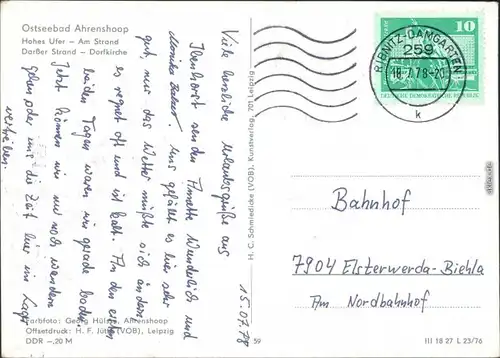 Ostseebad Ahrenshoop
Hohes Ufer – Am Strand
Darßer Strand – Dorfkirche
15.07.78
Viele herzliche Urlaubsgrüße aus
Ibenhorst senden Annette Wunderlich und
Uns gefällt es hier sehr
gut, nur das Wetter müßte sich ändern
es regnet oft und ist kalt. An den ersten
beiden Tagen waren wir gerade baden.
Jetzt können wir nur noch wandern
gehen oder uns die Zeit hier im Lager
vertreiben.
Farbfoto: Georg Hülse, Ahrenshoop
Offsetdruck: H. F. Jütte (VOB), Leipzig
DDR –,20 M
59
H. C. Schmiedicke (VOB), Kunstverlag, 701 Leipzig
10
DEUTSCHE DEMOKRATISCHE REPUBLIK
RIBNITZ-DAMGARTEN
259
18.7.78-20
k
Bahnhof
7904 Elsterwerda-Biehla
Am Nordbahnhof
III 18 27 L 23/76